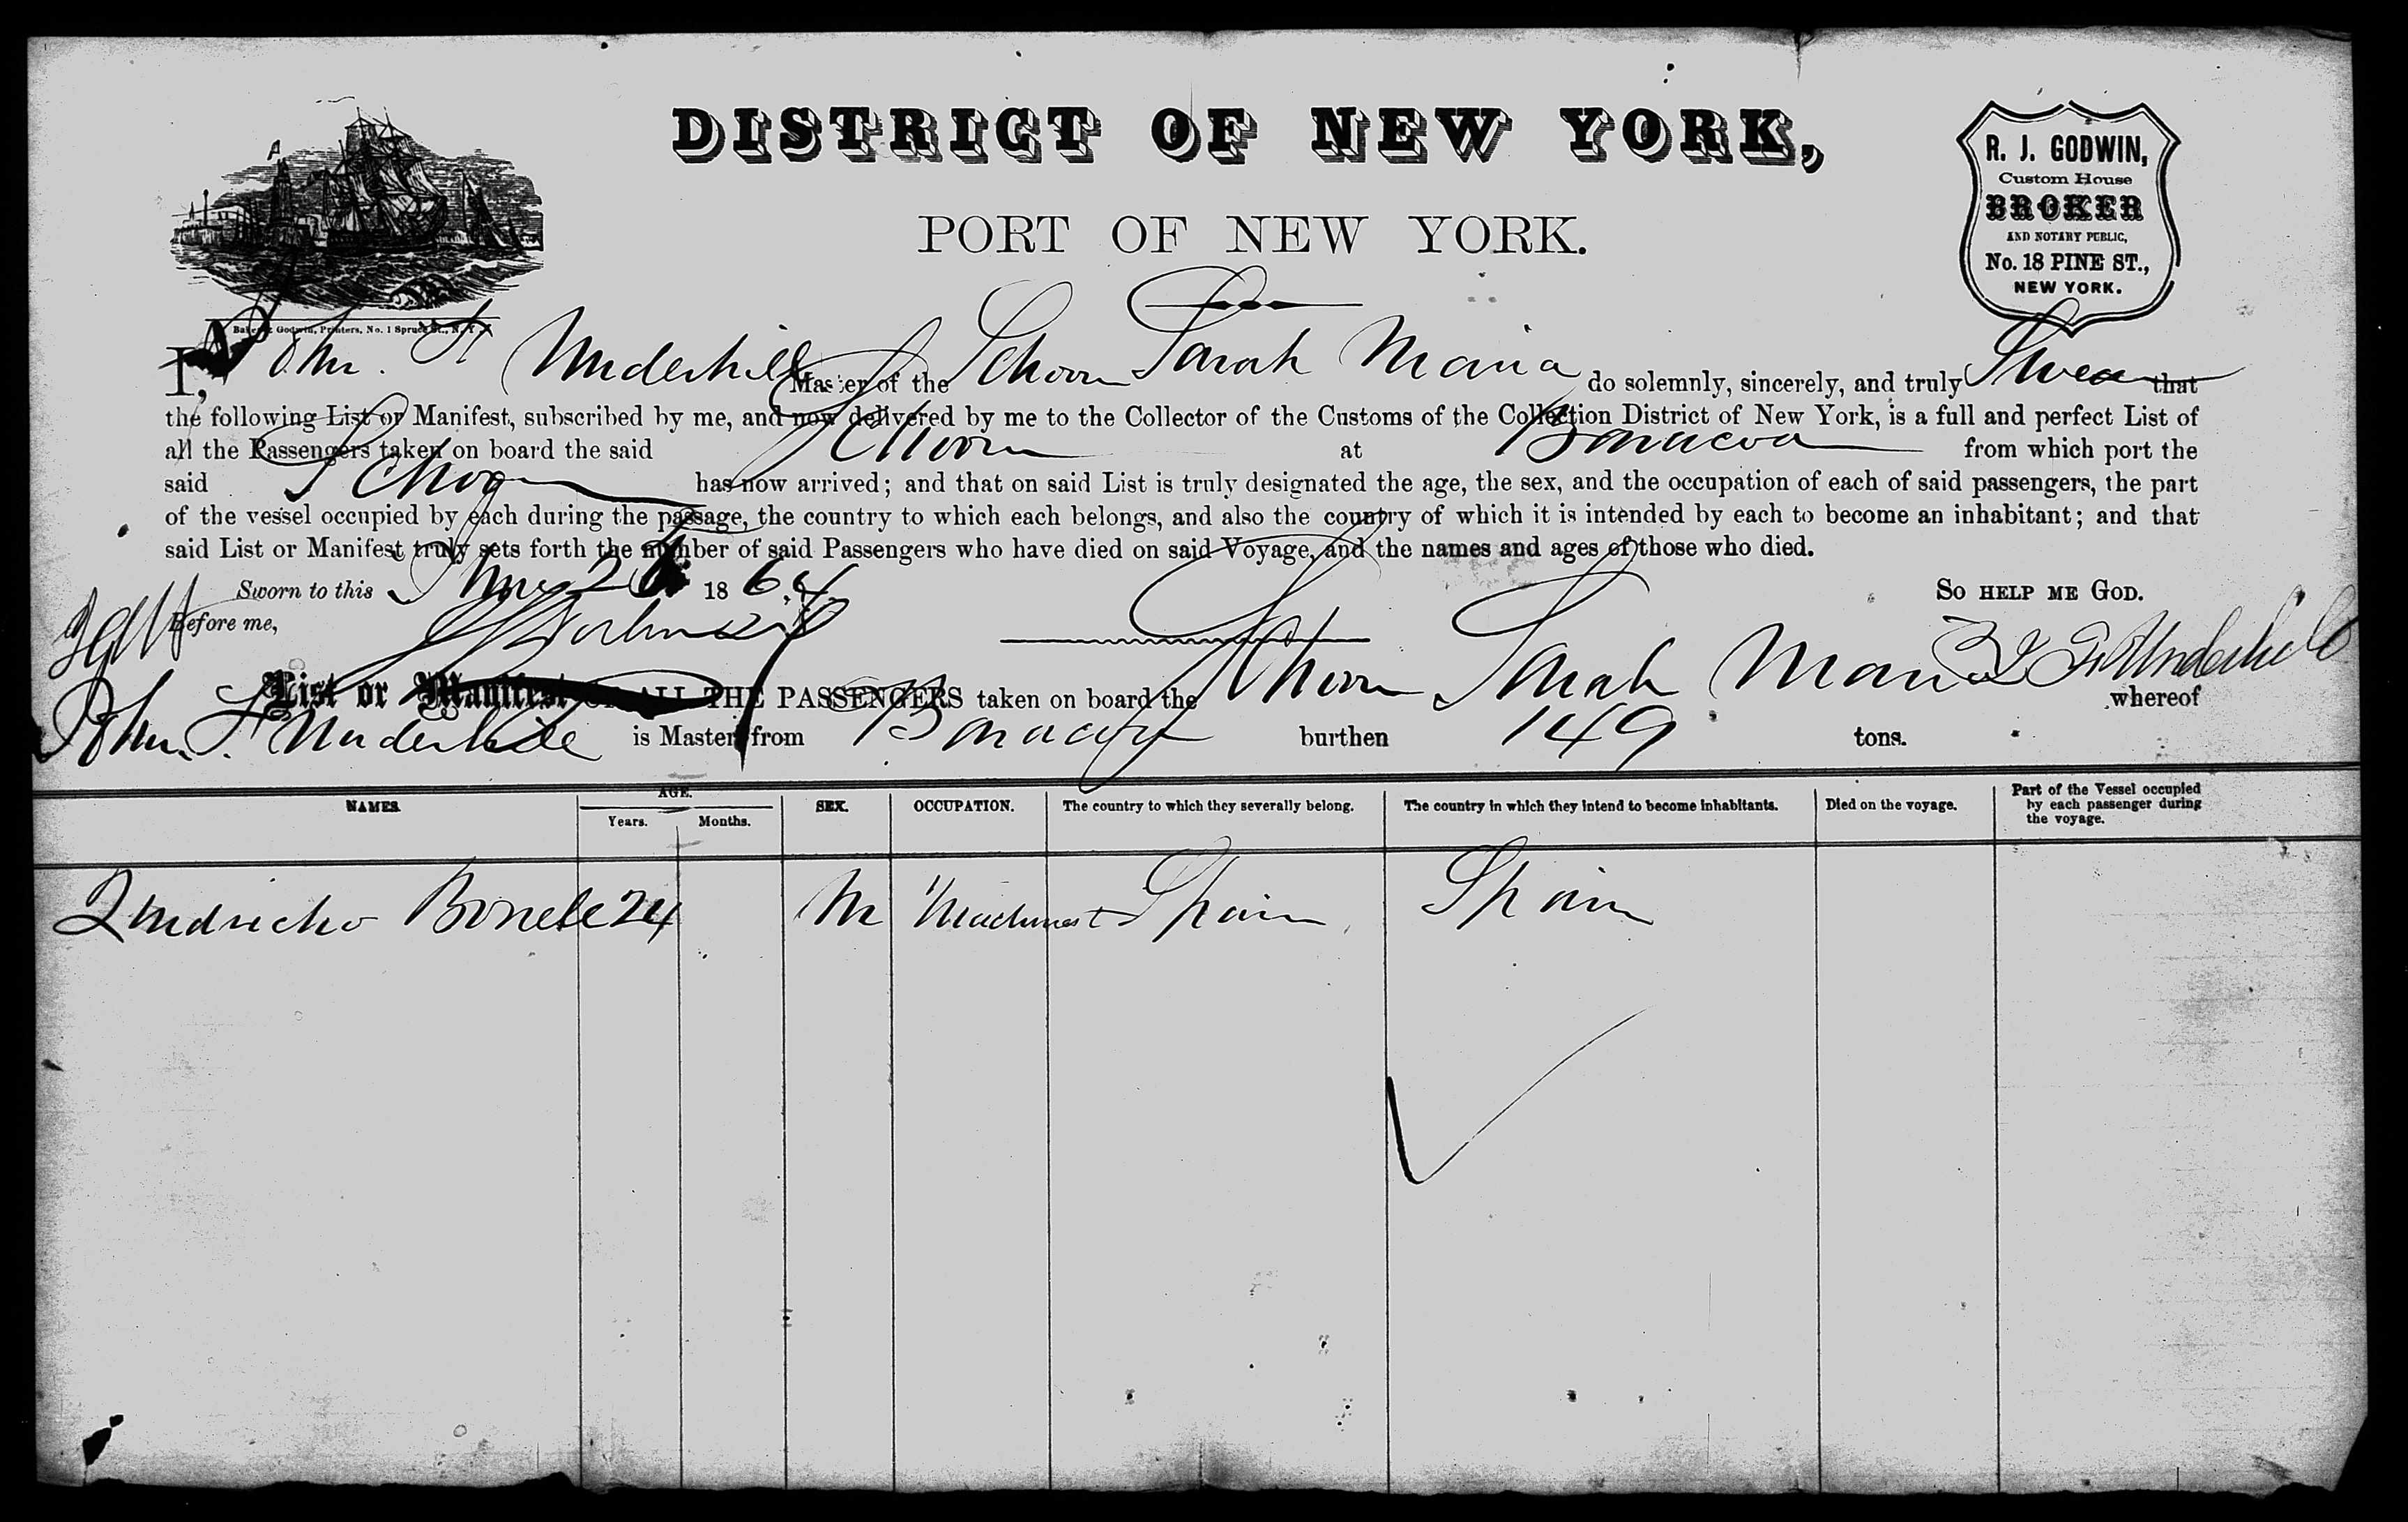 DISTRICT OF NEW YORK,
PORT OF NEW YORK.
R. J. GODWIN,
Custom House
BROKER
AND NOTARY PUBLIC,
No. 18 PINE ST.,
NEW YORK.
Baker & Godwin, Printers, No. 1 Spruce St., N. Y.
I, John Underhill Master of the Schoon Sarah Maria do solemnly, sincerely, and truly Swear that
the following List or Manifest, subscribed by me, and now delivered by me to the Collector of the Customs of the Collection District of New York, is a full and perfect List of
all the Passengers taken on board the said Schoon at Baracoa from which port the
said Schoon has now arrived; and that on said List is truly designated the age, the sex, and the occupation of each of said passengers, the part
of the vessel occupied by each during the passage, the country to which each belongs, and also the country of which it is intended by each to become an inhabitant; and that
said List or Manifest truly sets forth the number of said Passengers who have died on said Voyage, and the names and ages of those who died.
Sworn to this 1864 So HELP ME GOD.
Before me, Underhill
List or Manifest OF ALL THE PASSENGERS taken on board the Schoon Sarah Maria whereof
John Underhill is Master from Baracoa burthen 149 tons.
NAMES. AGE. Years. Months. SEX. OCCUPATION. The country to which they severally belong. The country in which they intend to become inhabitants. Died on the voyage. Part of the Vessel occupied by each passenger during the voyage.
24 M Machinest Spain Spain